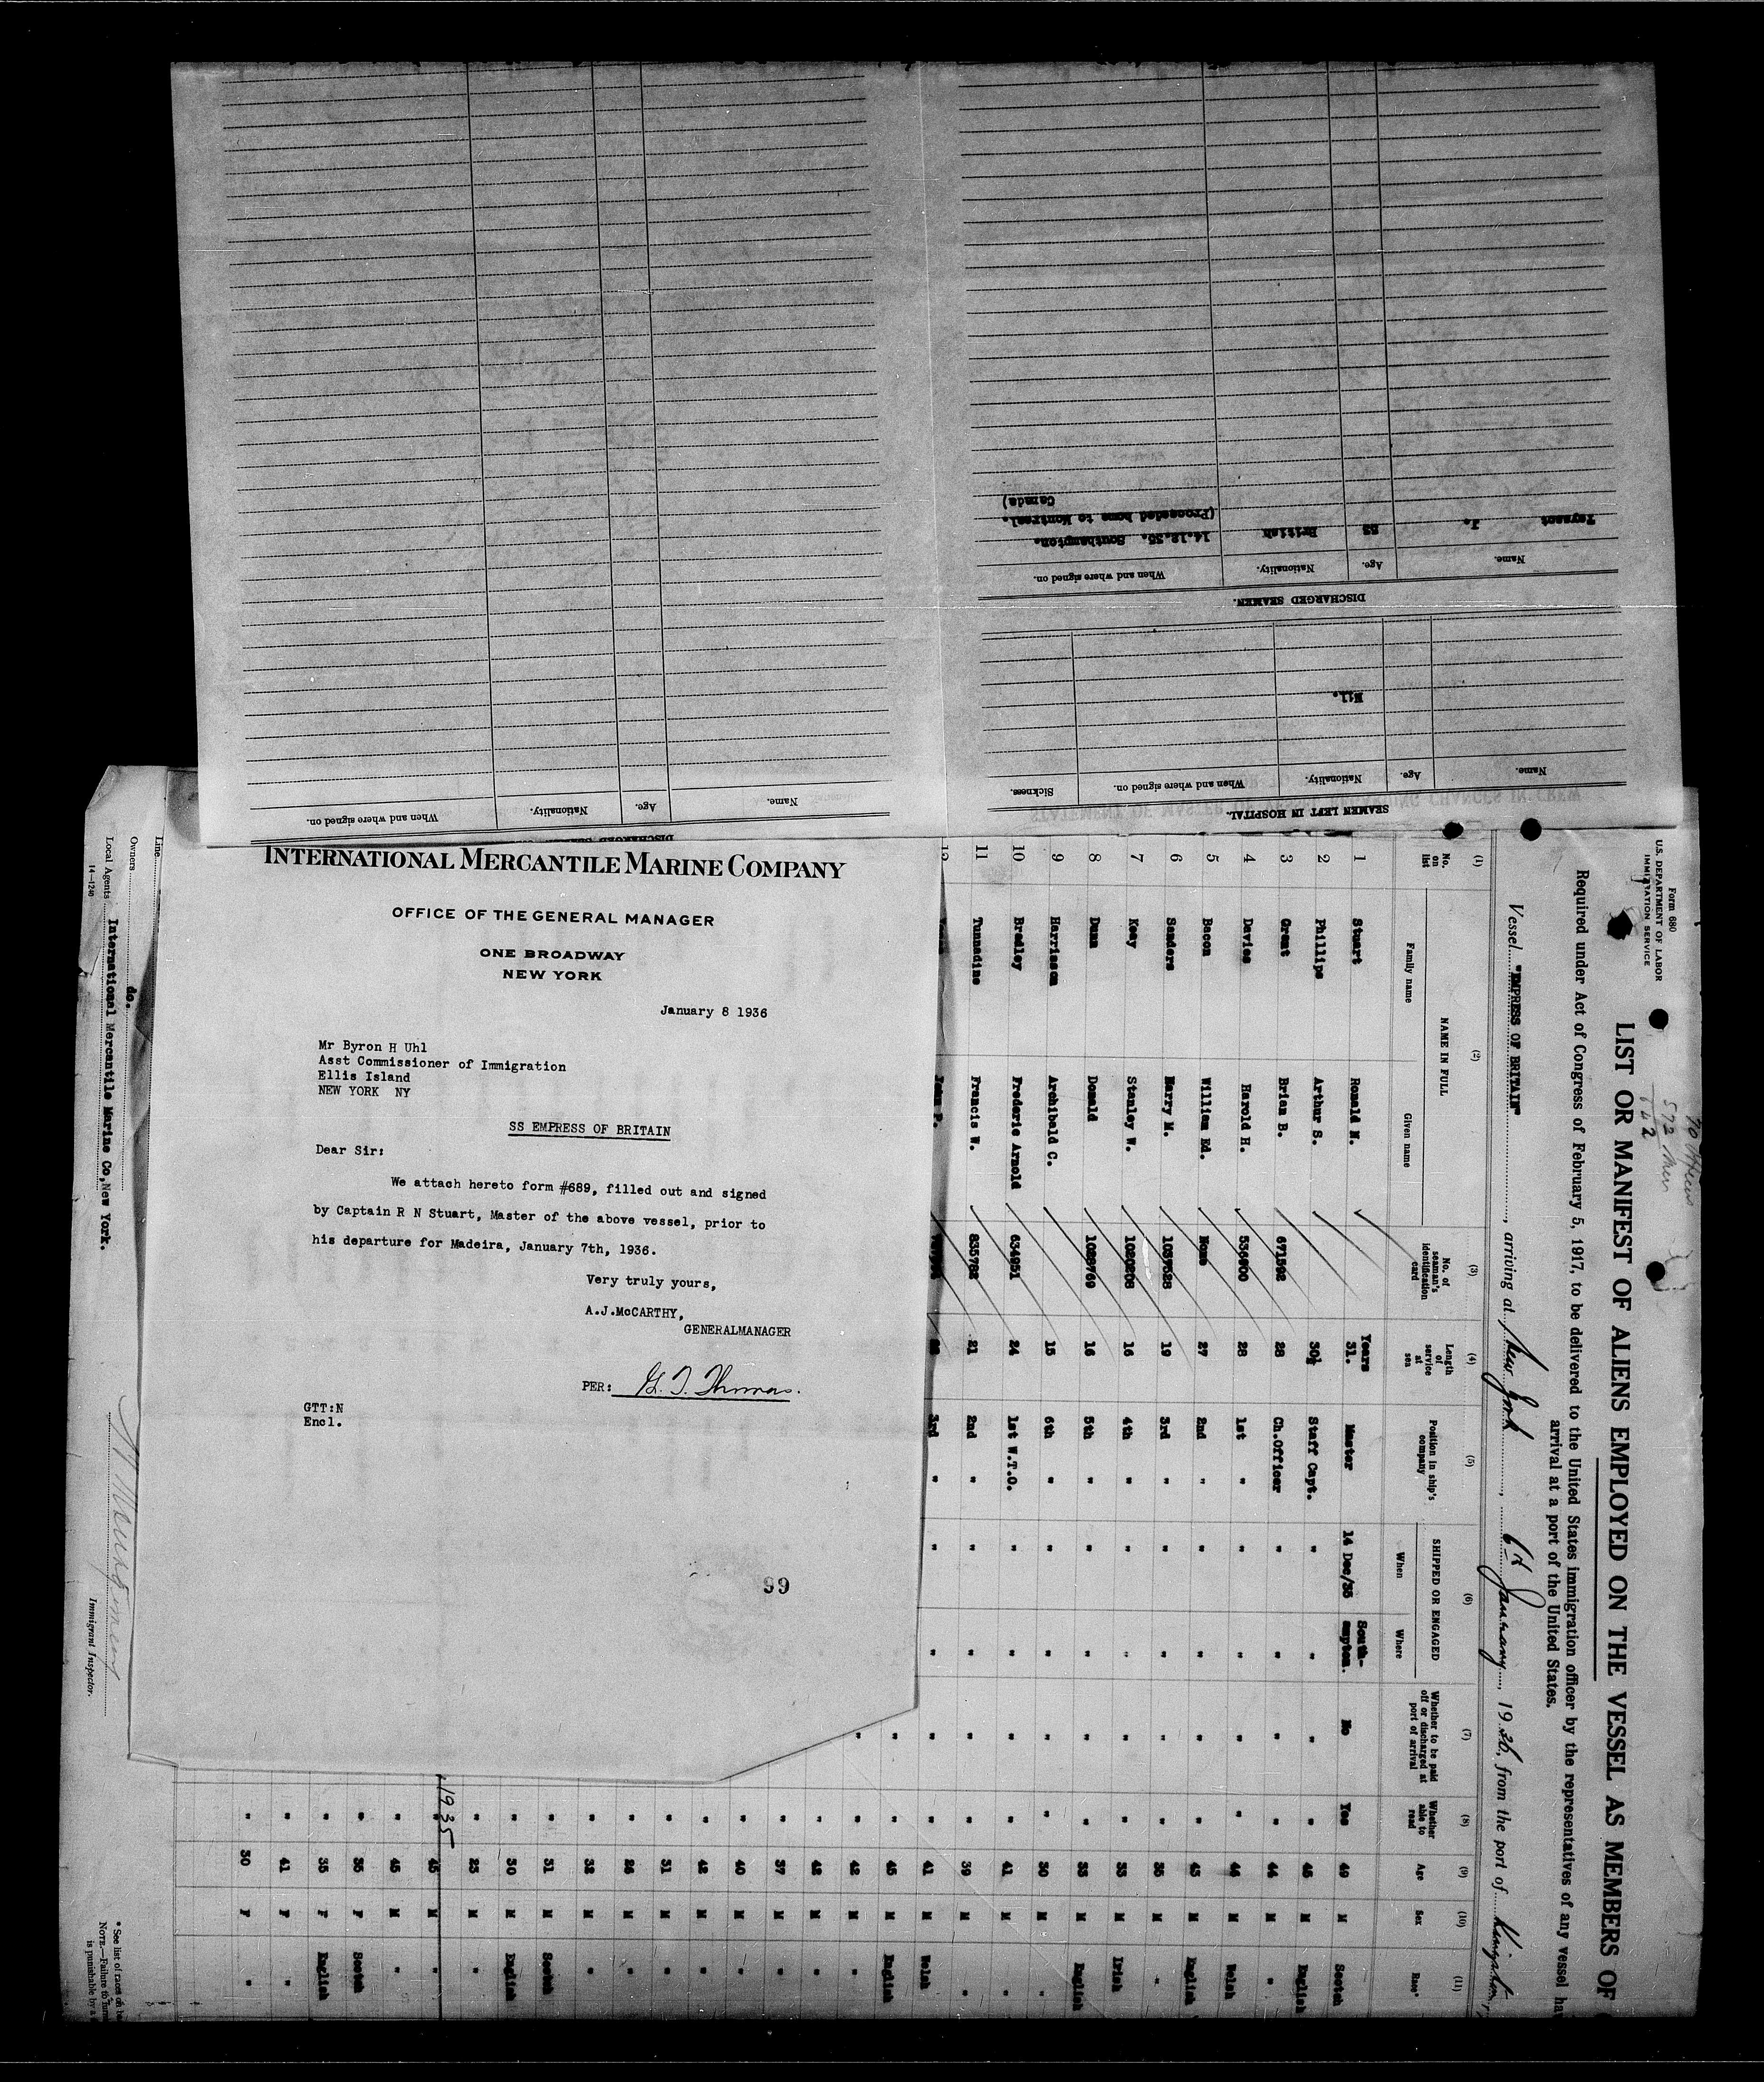 Name. Age. Nationality. When and where signed on.
SEAMEN LEFT IN HOSPITAL.
Name. Age. Nationality. When and where signed on. Sickness.
Nil.
DISCHARGED SEAMEN.
Name. Age. Nationality. When and where signed on.
J. 53 British 14.12.35. Southampton.
(Proceeded home to Montreal.
Canada)
INTERNATIONAL MERCANTILE MARINE COMPANY
OFFICE OF THE GENERAL MANAGER
ONE BROADWAY
NEW YORK
January 8 1936
Mr Byron H Uhl
Asst Commissioner of Immigration
Ellis Island
NEW YORK NY
SS EMPRESS OF BRITAIN
Dear Sir:
We attach hereto form #689, filled out and signed
by Captain R N Stuart, Master of the above vessel, prior to
his departure for Madeira, January 7th, 1936.
Very truly yours,
A.J.McCARTHY,
GENERALMANAGER
PER: G. T. Thomas.
GTT:N
Encl.
99
Form 680
U.S. DEPARTMENT OF LABOR
IMMIGRATION SERVICE
70 Officers
572 Men
642
LIST OR MANIFEST OF ALIENS EMPLOYED ON THE VESSEL AS MEMBERS OF
Required under Act of Congress of February 5, 1917, to be delivered to the United States immigration officer by the representatives of any vessel ha
arrival at a port of the United States.
Vessel "EMPRESS OF BRITAIN", arriving at New York, 6th January, 1936, from the port of Kingston,
(1) (2) (3) (4) (5) (6) (7) (8) (9) (10) (11)
No. on list NAME IN FULL No. of seaman's identification card Length of service at sea Position in ship's company SHIPPED OR ENGAGED Whether to be paid off or discharged at port of arrival Whether able to read Age Sex Race*
Family name Given name When Where
Years South-
1 Stuart Ronald N. 31. Master 14 Dec/35 ampton. No Yes 49 M Scotch
2 Phillips Arthur S. 30½ Staff Capt. " " " " 45 M English
3 Grant Brian B. 671592 28 Ch.Officer " " " " 44 M "
4 Davies Harold H. 536600 28 1st " " " " " 44 M Welsh
5 Bacon William Ed. None 27 2nd " " " " " 45 M English
6 Sanders Harry M. 1037528 19 3rd " " " " " 35 M "
7 Keay Stanley W. 1020208 16 4th " " " " " 33 M Irish
8 Dunn Donald 1028769 16 5th " " " " " 33 M English
9 Harrison Archibald C. 15 6th " " " " " 30 M "
10 Bradley Frederic Arnold 634951 24 1st W.T.O. " " " " 41 M "
11 Tunnadine Francis W. 835782 21 2nd " " " " " 39 M "
12 John P. 3rd " " " " " 41 M Welsh
" " 45 M English
" " 42 M "
" 42 M "
" 37 M "
" 40 M "
" 42 M "
" 31 M "
" 26 M "
" 32 M "
" 31 M Scotch
" 30 M English
" 23 M "
1935
" 45 M "
" 45 M "
" 35 F Scotch
" 35 F English
" 41 F "
" 30 F "
Line
Owners do.
Local Agents International Mercantile Marine Co,New York.
14—1240
Immigrant Inspector.
* See list of races on ba
NOTE.—Failure to furn
is punishable by a